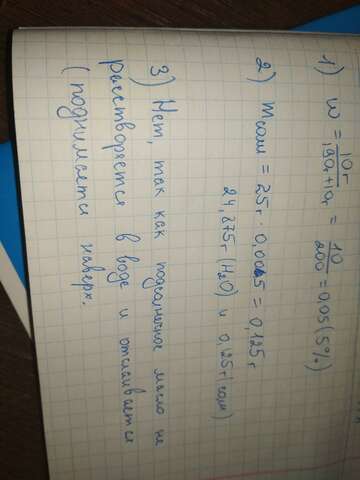 1) w = 10г / 190г+10г = 10 / 200 = 0,05 (5%)
2) m соли = 25г · 0,005 = 0,125г
24,875г (H₂O) и 0,125г (соли)
3) Нет, так как подсолнечное масло не
расстворяется в воде и отслаивается
(поднимается наверх.